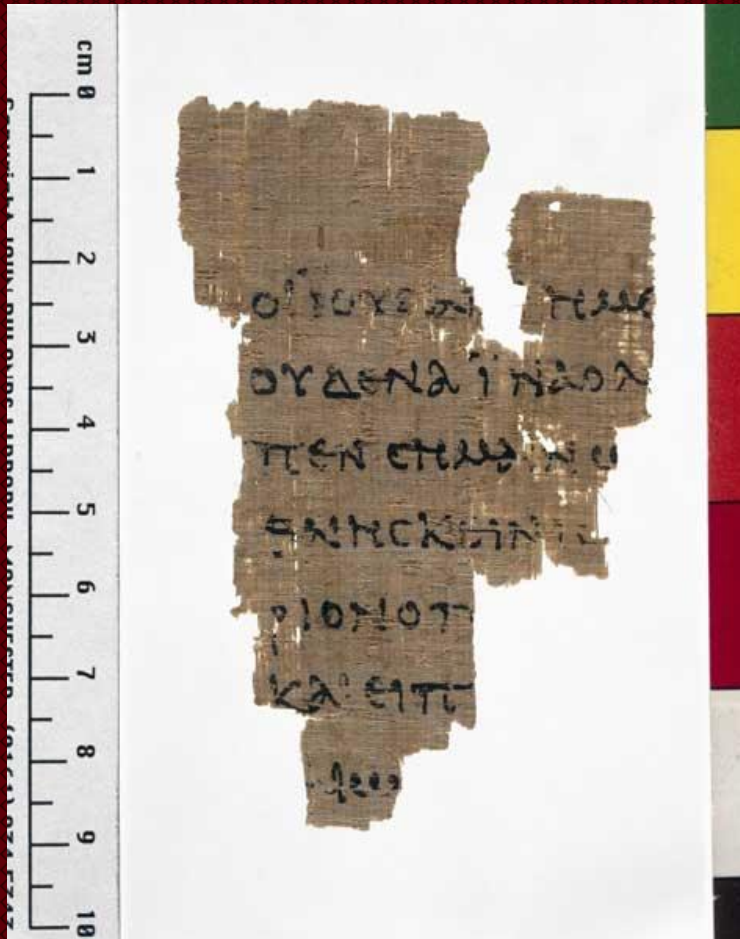 cm 0 1 2 3 4 5 6 7 8 9 10
ΟΙ ΙΟΥΔΑΙ ΗΜΕ
ΟΥΔΕΝΑ ΙΝΑ Ο Λ
ΠΕΝ ϹΗΜΑΙΝΩ
ΘΝΗϹΚΕΙΝ ΙϹ
ΡΙΟΝ Ο Π
ΚΑΙ ΕΙΠ